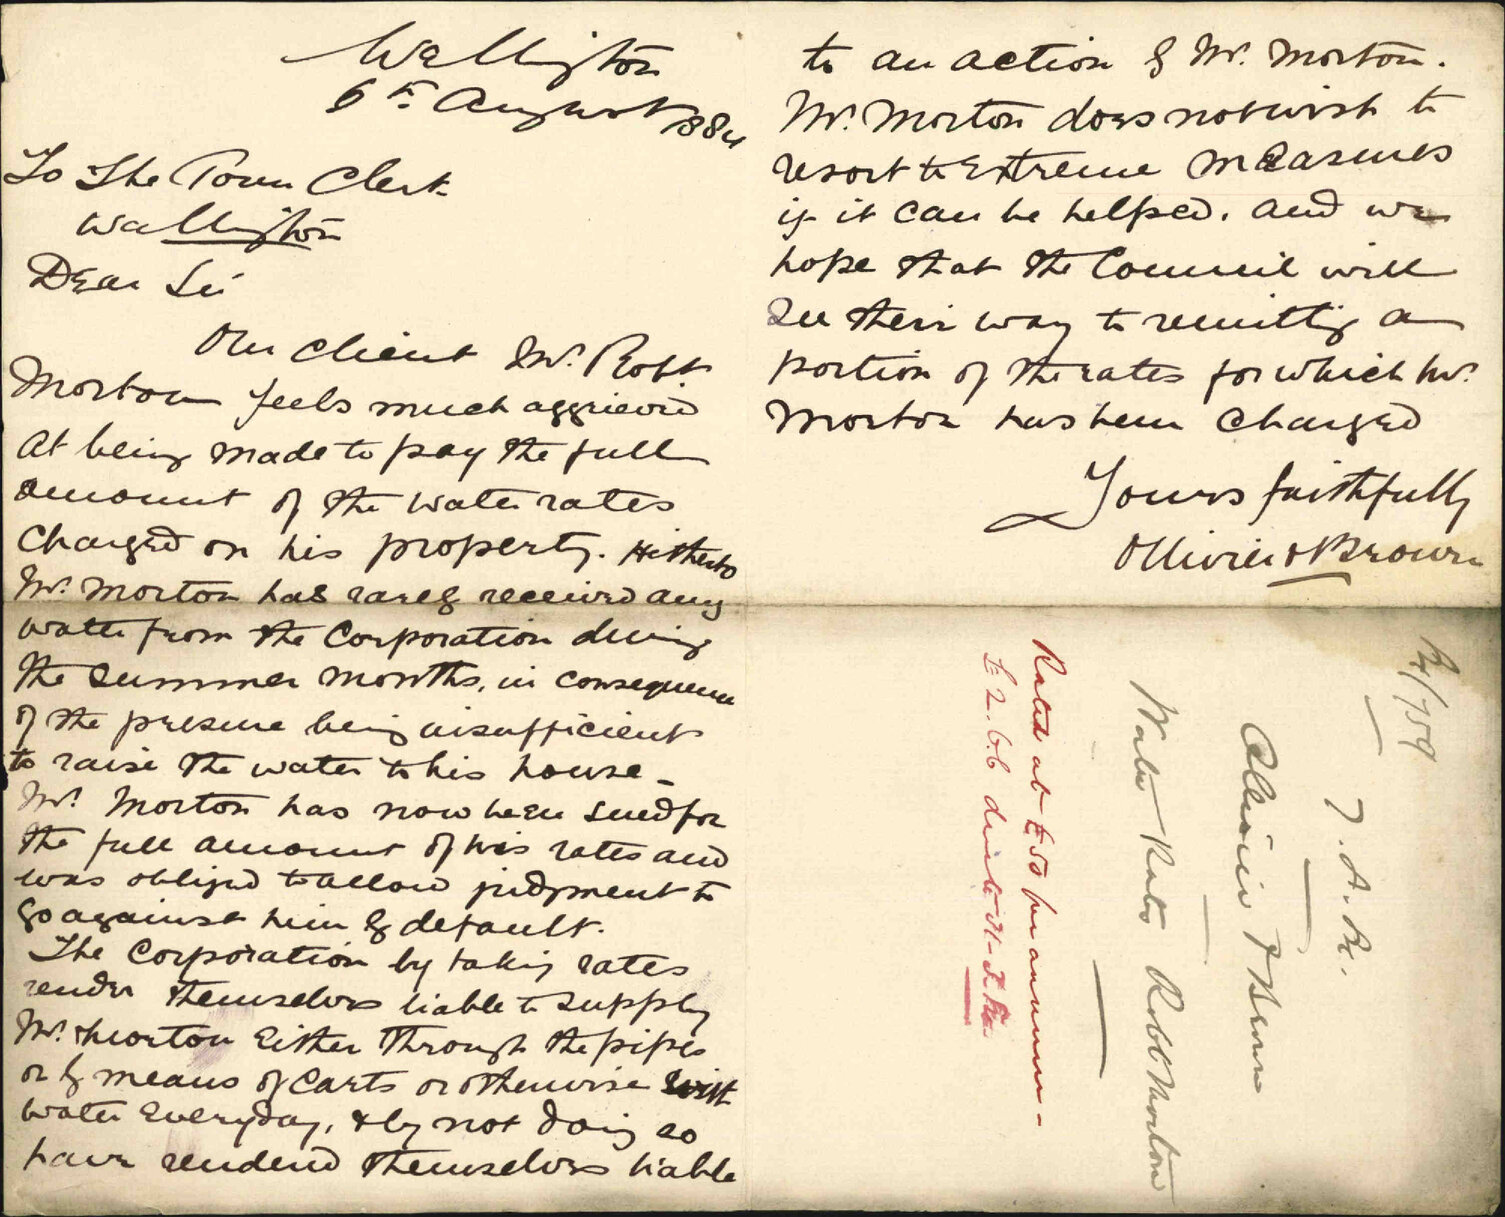 Wellington
6th August 1884
To The Town Clerk
Wellington
Dear Sir
Our client Mr. Robt.
Morton feels much aggrieved
at being made to pay the full
amount of the water rates
charged on his property. Hitherto
Mr. Morton has rarely received any
water from the Corporation during
the summer months, in consequence
of the pressure being insufficient
to raise the water to his house -
Mr. Morton has now been sued for
the full amount of his rates and
was obliged to allow judgment to
go against him by default.
The Corporation by taking rates
render themselves liable to supply
Mr. Morton either through the pipes
or by means of carts or otherwise with
water everyday, & by not doing so
have rendered themselves liable
to an action by Mr. Morton.
Mr. Morton does not wish to
resort to extreme measures
if it can be helped. and we
hope that the Council will
see their way to remitting a
portion of the rates for which Mr.
Morton has been charged
Yours faithfully
Ollivier & Brown
84/759
T. A. Re.
Ollivier & Brown
Water Rates Robt Morton
Rated at £50 per annum -
£2. 6.6